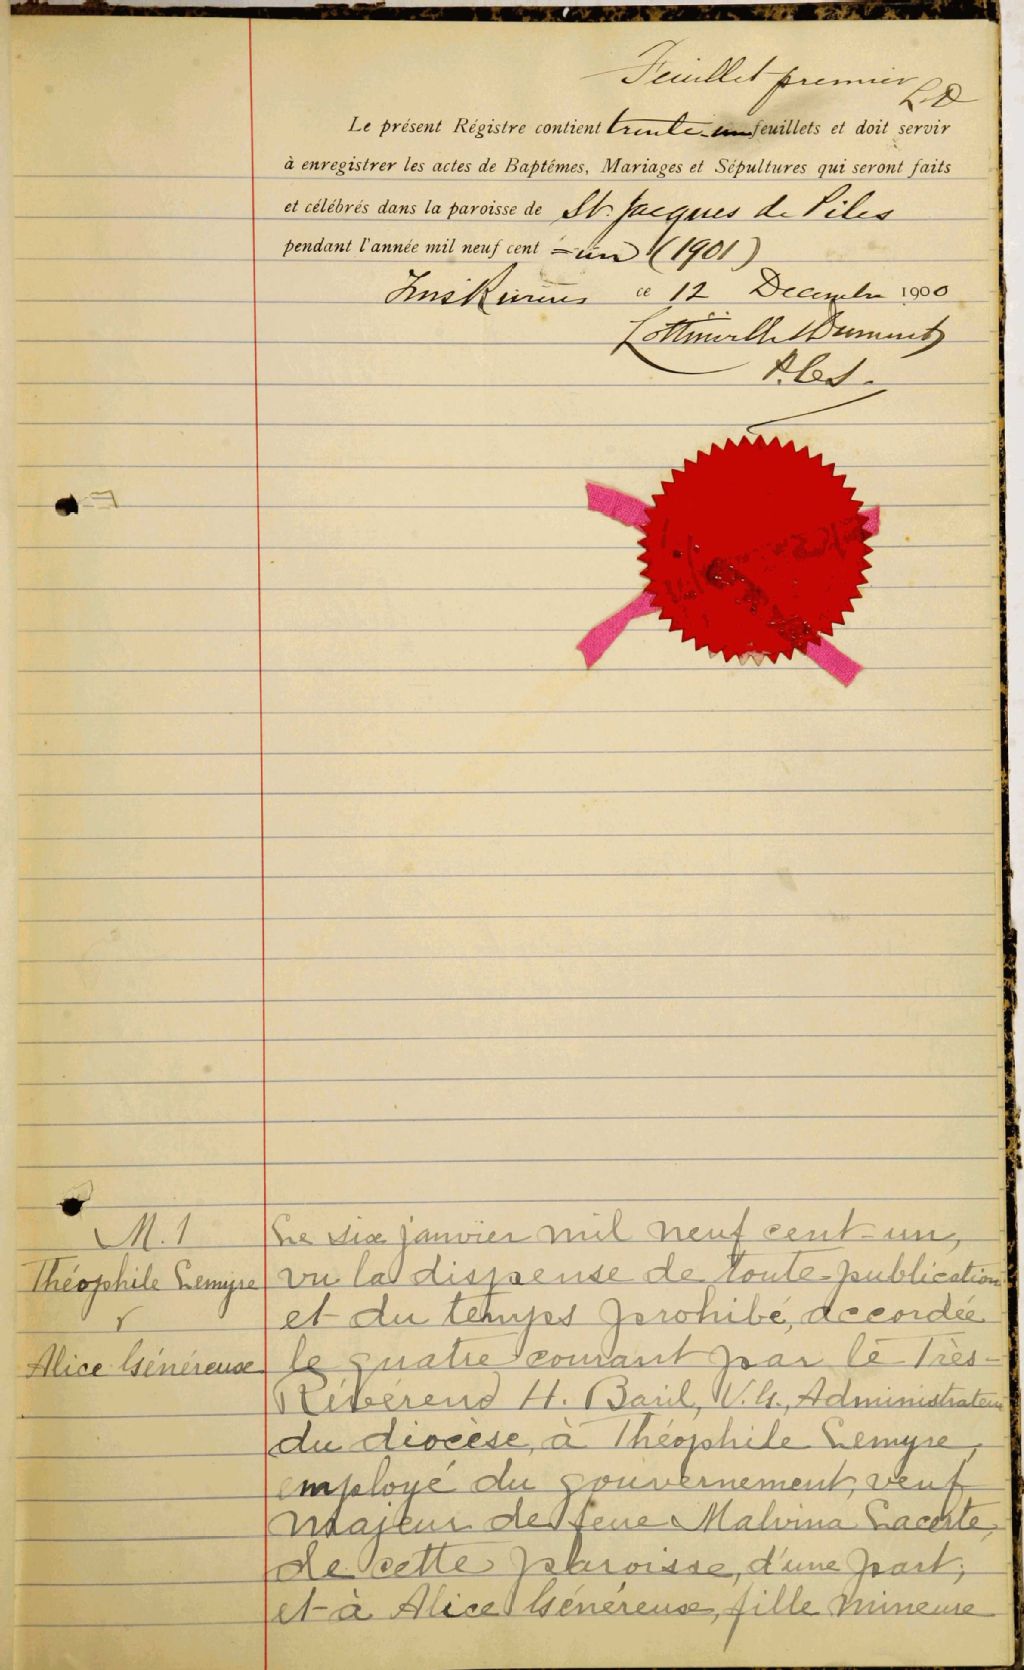 Feuillet premier
L.D
Le présent Régistre contient trente-un feuillets et doit servir
à enregistrer les actes de Baptêmes, Mariages et Sépultures qui seront faits
et célébrés dans la paroisse de St. Jacques de Piles
pendant l'année mil neuf cent =un (1901)
ce 12 Decembre 1900
P.C.S.
M. 1
Théophile Lemyre
&
Alice Généreux
Le six janvier mil neuf cent-un,
vu la dispense de toute publication
et du temps prohibé, accordée
le quatre courant par le Très-
Révérend H. Baril, V.G., Administrateur
du diocèse, à Théophile Lemyre,
employé du gouvernement, veuf
majeur de feue Malvina Lacerte,
de cette paroisse, d'une part;
et à Alice Généreux, fille mineure